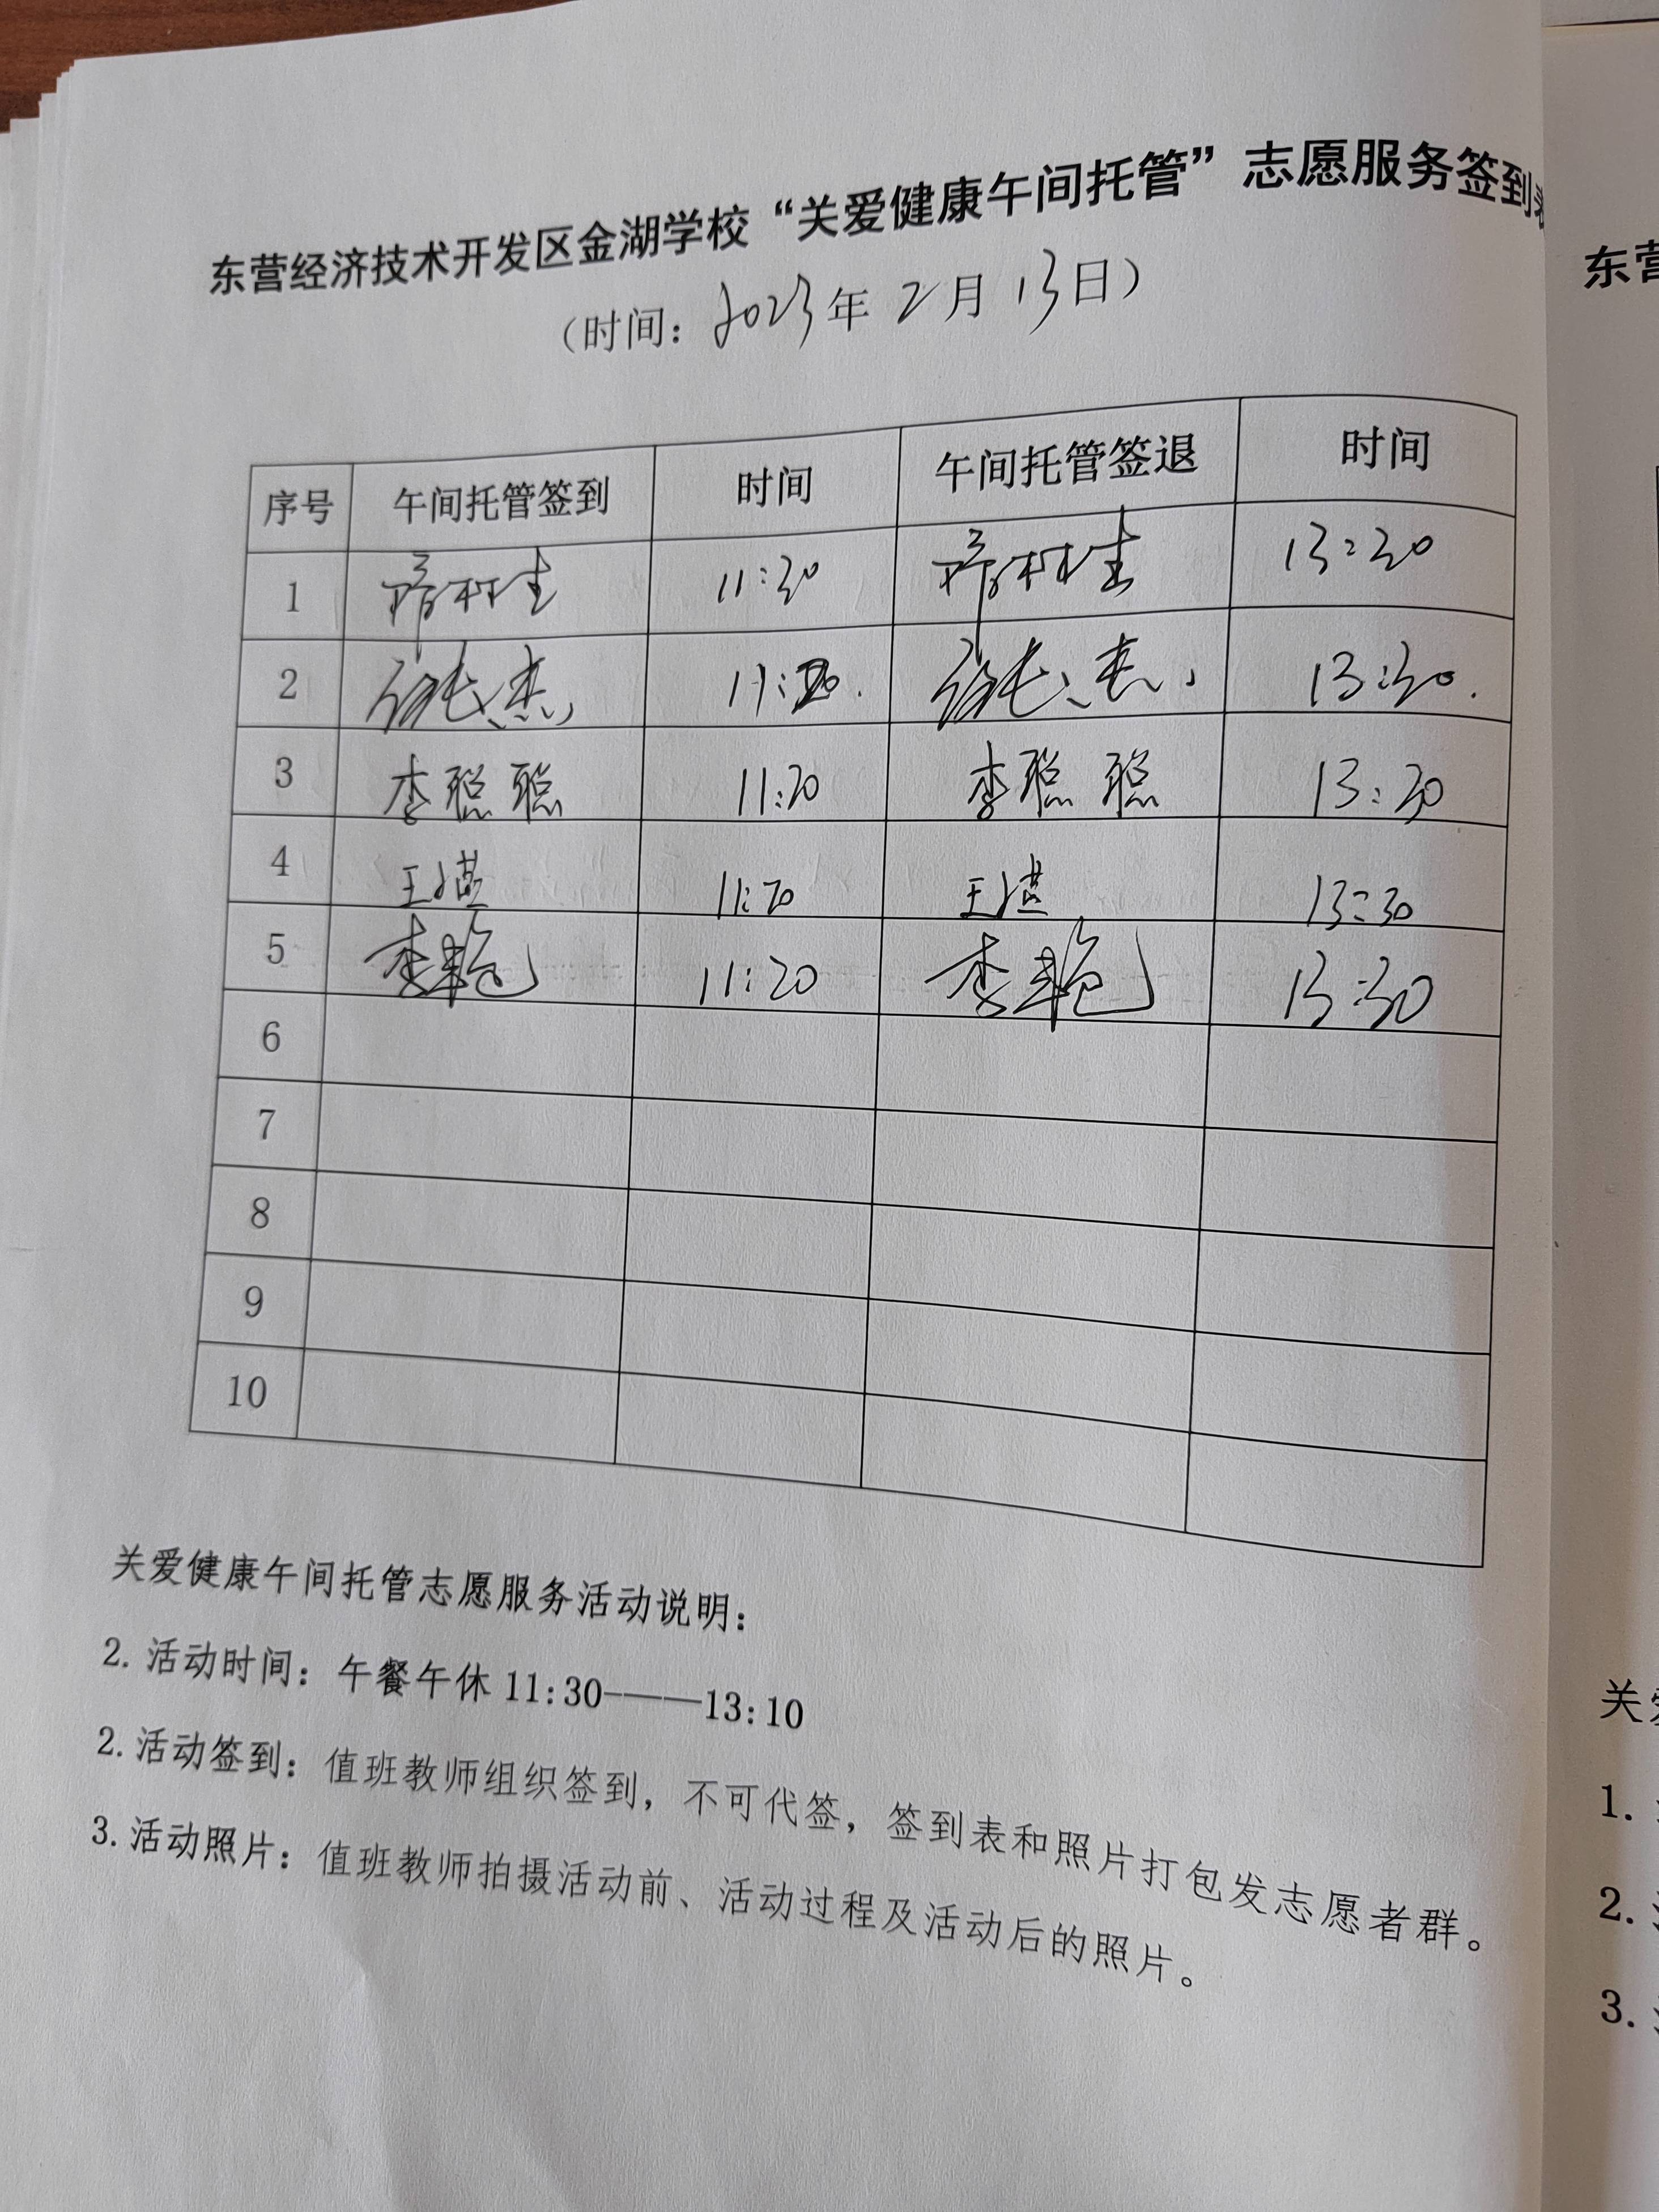 东营经济技术开发区金湖学校“关爱健康午间托管”志愿服务签到表
(时间：2023年2月13日)
序号 午间托管签到 时间 午间托管签退 时间
1 11:30 13:20
2 11:20. 13:30.
3 李聪聪 11:20 李聪聪 13:20
4 王 11:20 王 13:30
5 李艳 11:20 李艳 13:30
6
7
8
9
10
关爱健康午间托管志愿服务活动说明：
2. 活动时间：午餐午休 11:30———13:10
2. 活动签到：值班教师组织签到，不可代签，签到表和照片打包发志愿者群。
3. 活动照片：值班教师拍摄活动前、活动过程及活动后的照片。
东营
关爱
1.
2.
3.